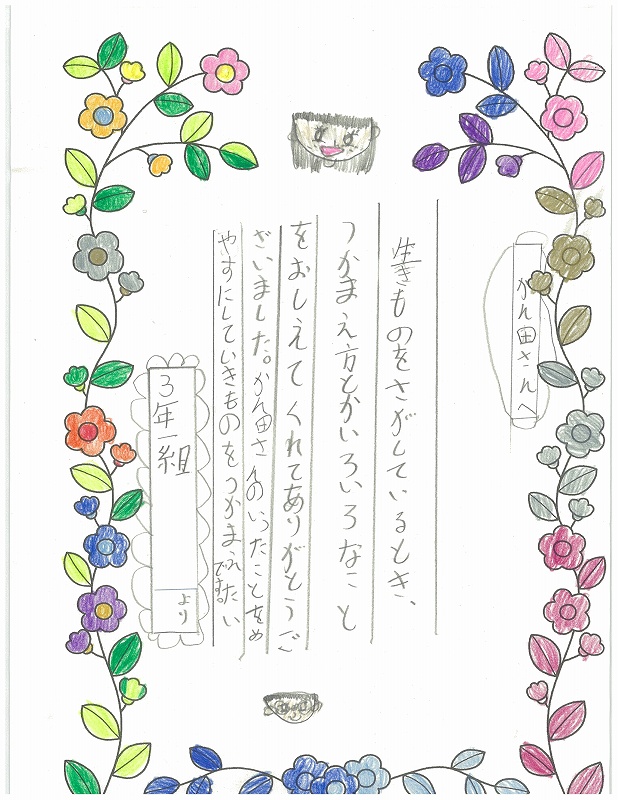 かん田さんへ
生きものをさがしているとき、
つかまえ方とかいろいろなこと
をおしえてくれてありがとうご
ざいました。かん田さんのいったことをめ
やすにしていきものをつかまえれたい
です。
3年一組
より